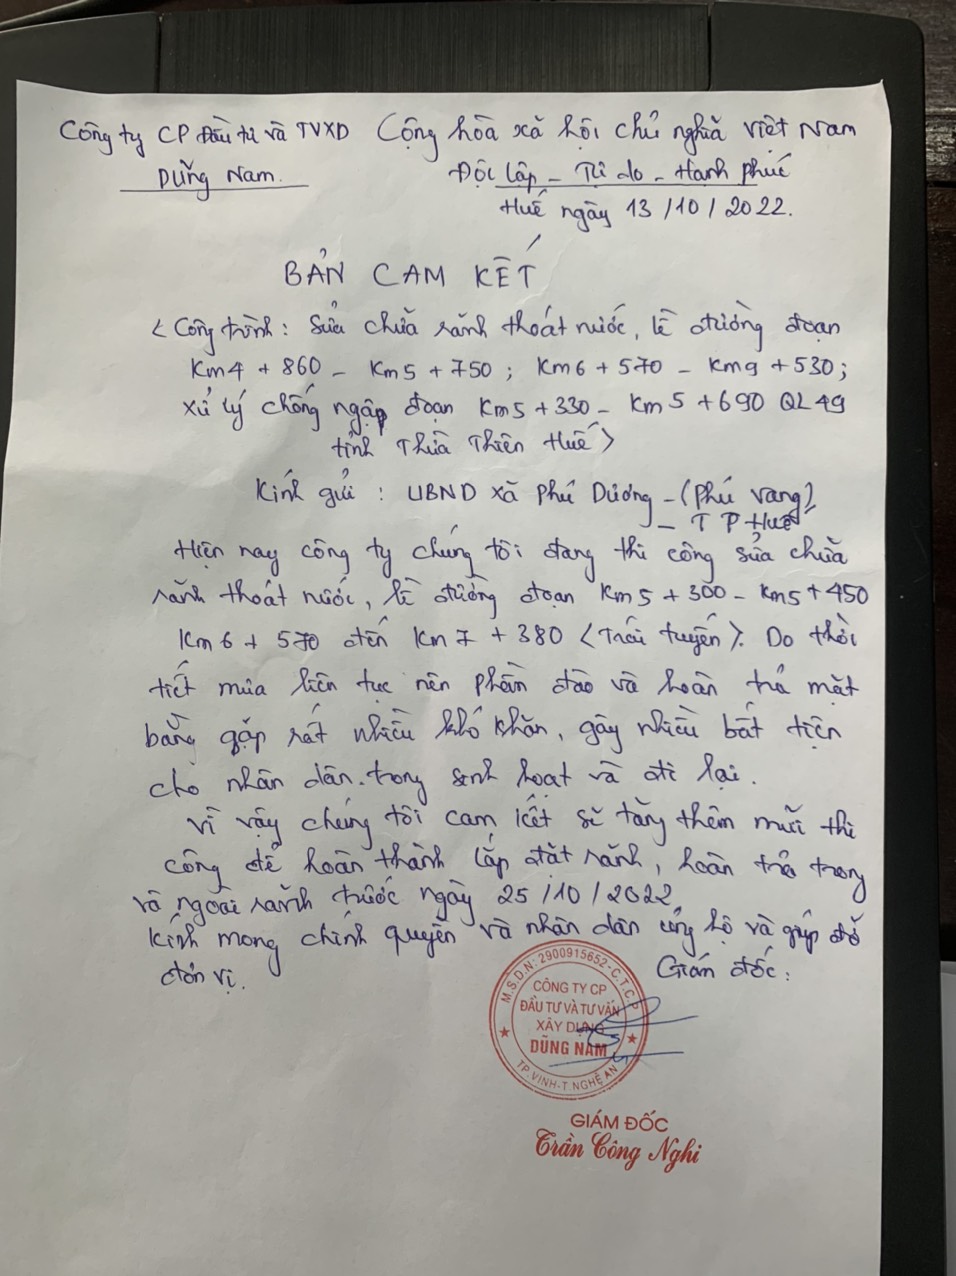 Công ty CP Đầu tư và TVXD
Dũng Nam.
Cộng hòa xã hội chủ nghĩa Việt Nam
Độc lập - Tự do - Hạnh phúc
Huế ngày 13/10/2022.
BẢN CAM KẾT
< Công trình: Sửa chữa rãnh thoát nước, lề đường đoạn
Km4 + 860 - Km5 + 750; Km6 + 570 - Km9 + 530;
xử lý chống ngập đoạn Km5 + 330 - Km5 + 690 QL49
tỉnh Thừa Thiên Huế >
Kính gửi: UBND xã Phú Dương - (Phú Vang)
- TP Huế
Hiện nay công ty chúng tôi đang thi công sửa chữa
rãnh thoát nước, lề đường đoạn Km5 + 300 - Km5 + 450
Km6 + 570 đến Km7 + 380 < Trái tuyến >. Do thời
tiết mưa liên tục nên phần đào và hoàn trả mặt
bằng gặp rất nhiều khó khăn, gây nhiều bất tiện
cho nhân dân trong sinh hoạt và đi lại.
Vì vậy chúng tôi cam kết sẽ tăng thêm mũi thi
công để hoàn thành lắp đặt rãnh, hoàn trả trong
và ngoài rãnh trước ngày 25/10/2022.
Kính mong chính quyền và nhân dân ủng hộ và giúp đỡ
đơn vị.
Giám đốc:
M.S.D.N: 2900915652-C.T.C.P
CÔNG TY CP
ĐẦU TƯ VÀ TƯ VẤN
XÂY DỰNG
DŨNG NAM
TP.VINH-T.NGHỆ AN
GIÁM ĐỐC
Trần Công Nghi